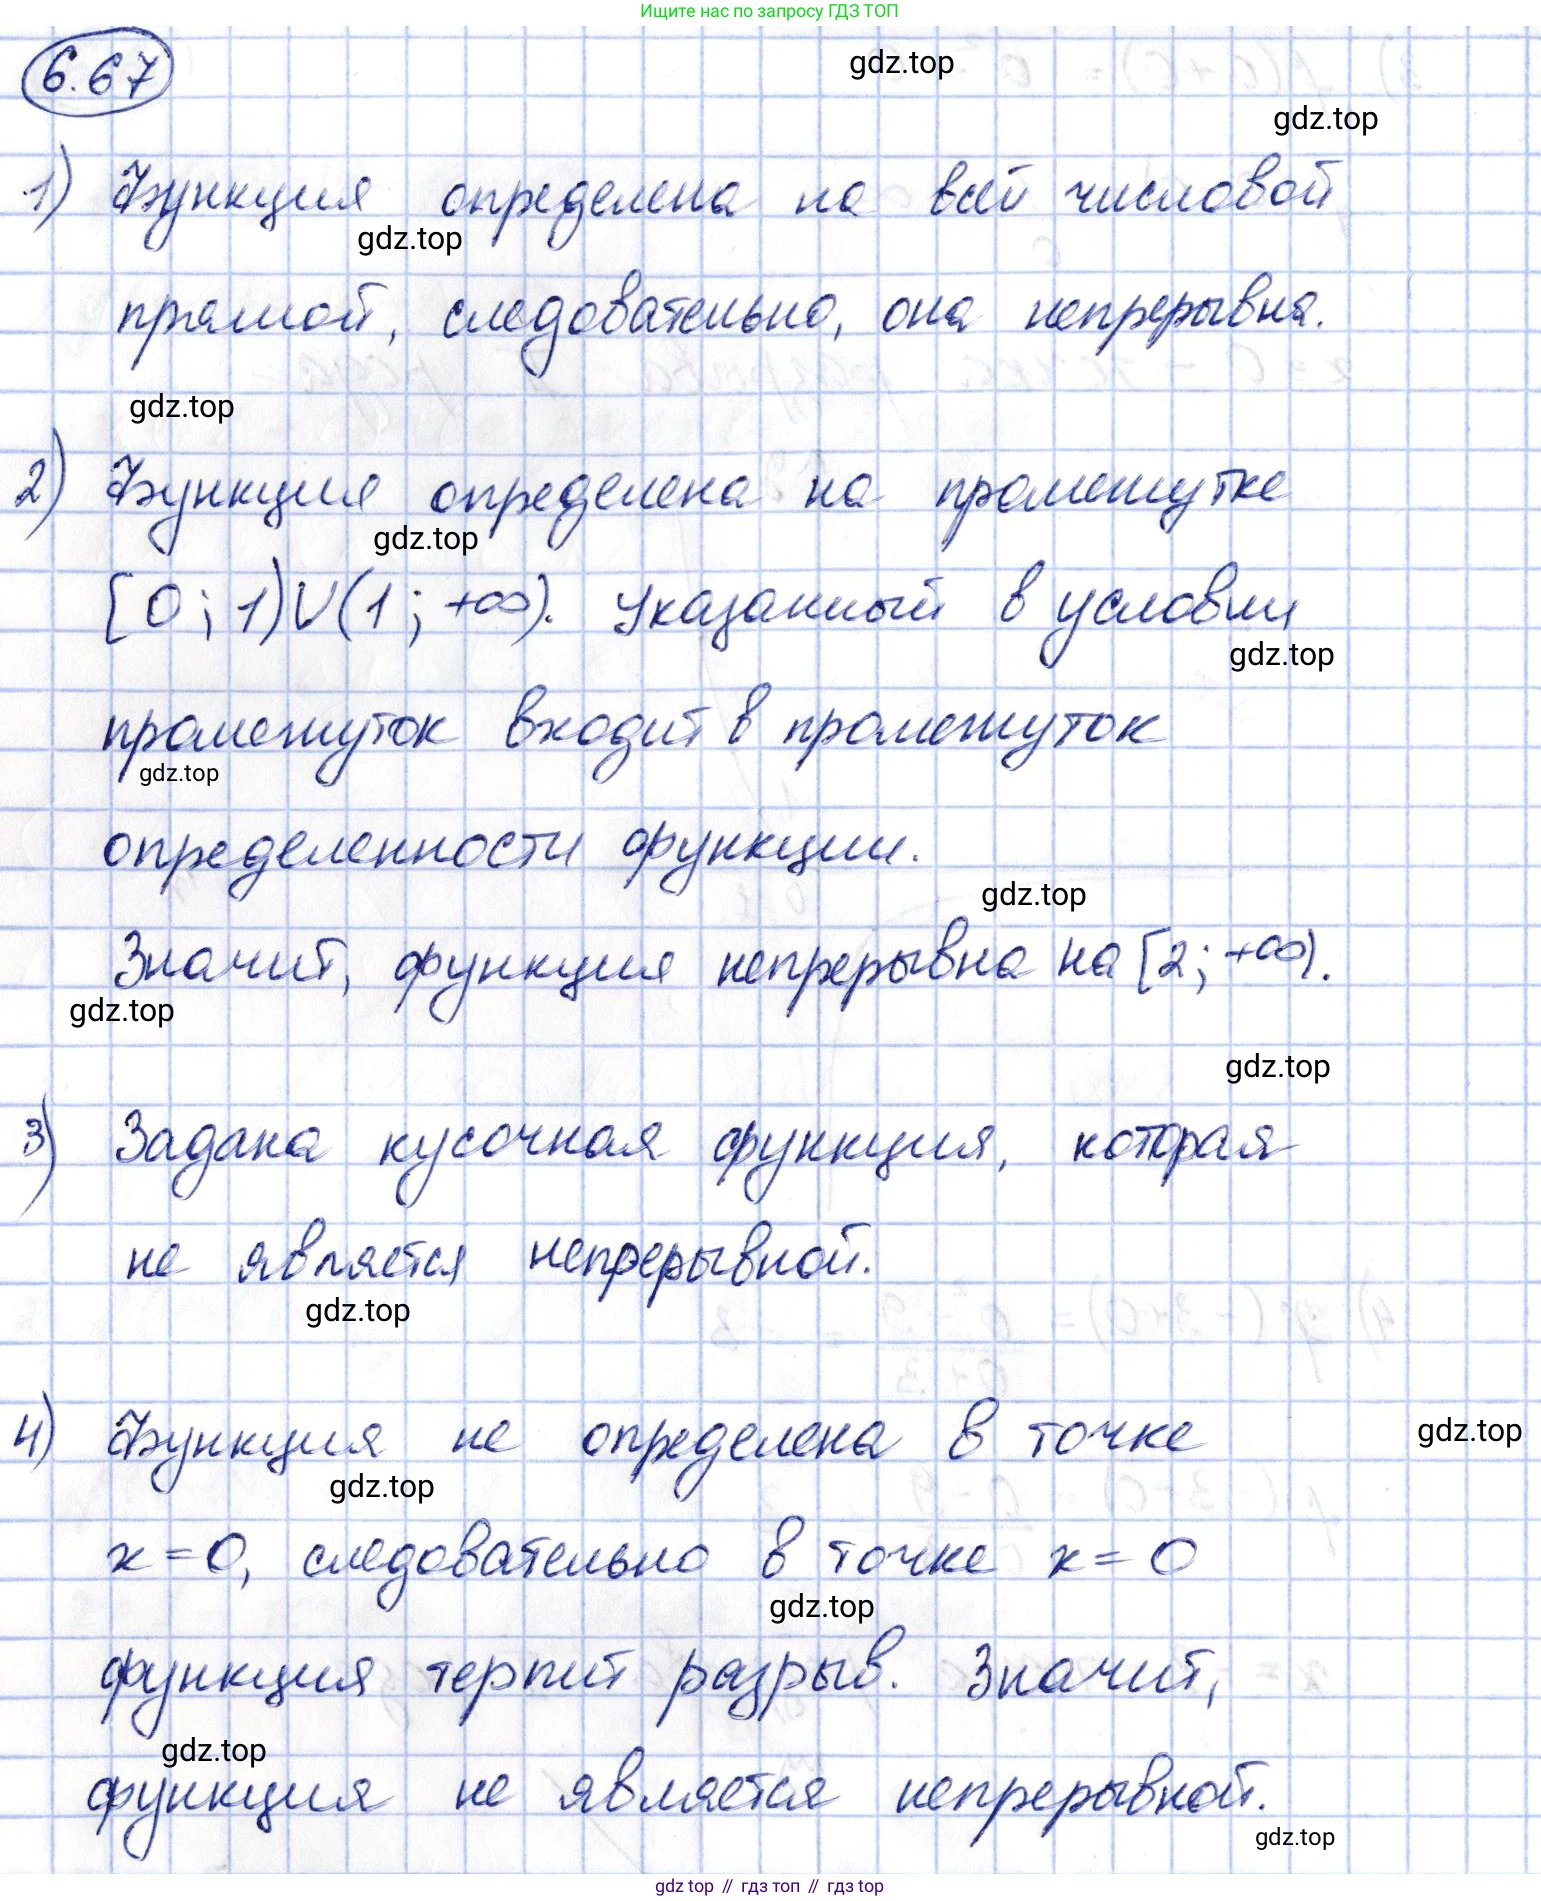 Ищите нас по запросу ГДЗ ТОП
6.67
gdz.top
gdz.top
1) Функция определена на всей числовой
gdz.top
прямой, следовательно, она непрерывна.
gdz.top
2) Функция определена на промежутке
gdz.top
[0; 1)U(1; +∞). Указанный в условии
gdz.top
промежуток входит в промежуток
gdz.top
определенности функции.
gdz.top
Значит, функция непрерывна на [2; +∞).
gdz.top
gdz.top
3) Задана кусочная функция, которая
не является непрерывной.
gdz.top
4) Функция не определена в точке
gdz.top
gdz.top
x=0, следовательно в точке x=0
gdz.top
функция терпит разрыв. Значит,
gdz.top
функция не является непрерывной.
gdz.top
gdz top // гдз топ // gdz top